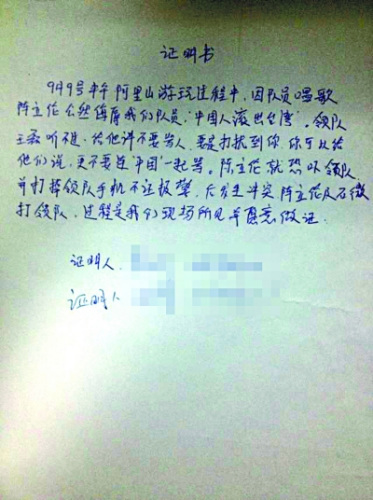 证明书
9月9号中午阿里山游玩过程中，因队员唱歌
陈立伦公然侮辱我们队员，"中国人滚出台湾"。领队
王 听 ，给他讲不要骂人，要是打扰到你，你可以给
他们说，更不要连"中国"一起骂。陈立伦就恐吓领队
并打掉领队手机不让报警，后发生冲突陈立伦及石
打领队，过程是我们现场所见并愿意做证.
证明人
证明人